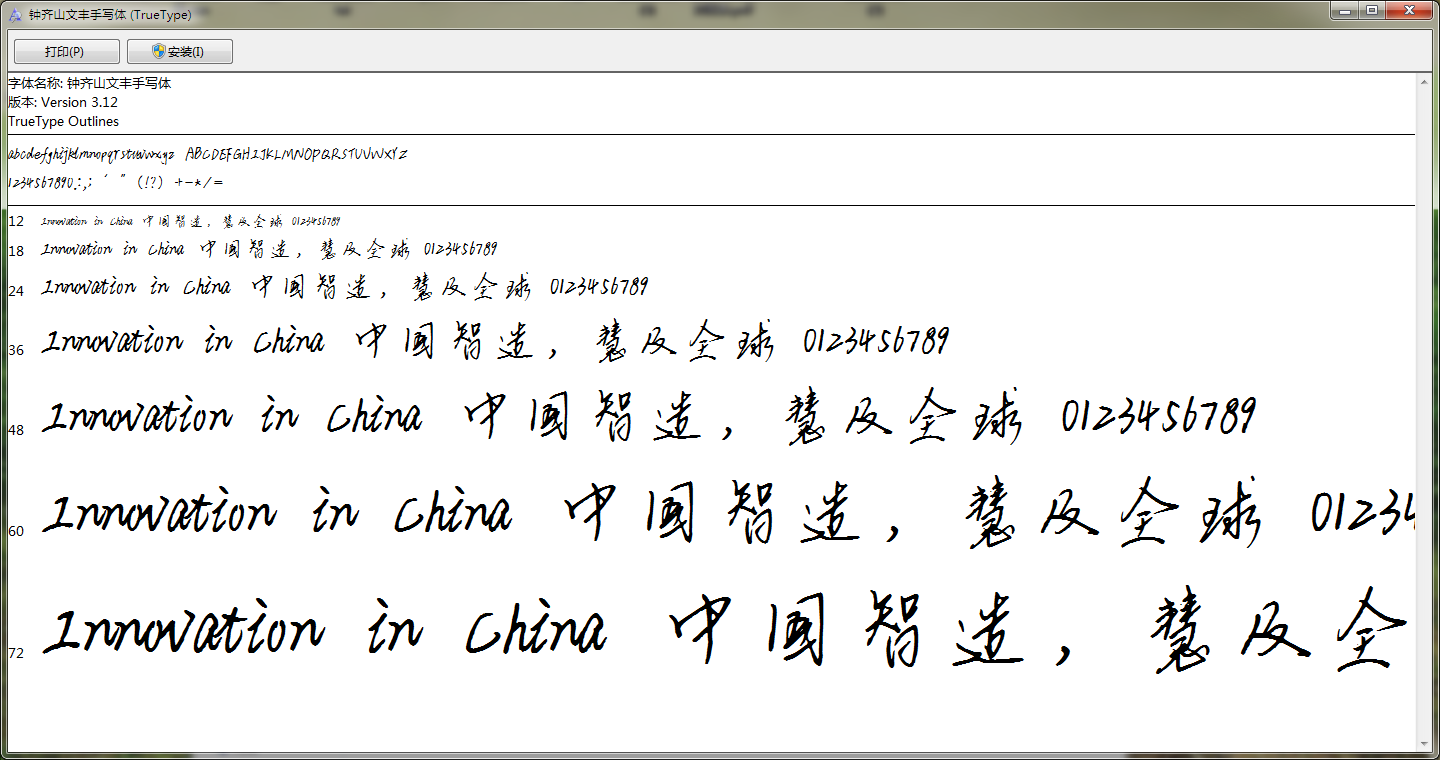 钟齐山文丰手写体 (TrueType)
打印(P) 安装(I)
字体名称: 钟齐山文丰手写体
版本: Version 3.12
TrueType Outlines
abcdefghijklmnopqrstuvwxyz ABCDEFGHIJKLMNOPQRSTUVWXYZ
1234567890.:,; ' " (!?) +-*/=
12 Innovation in China 中国智造，慧及全球 0123456789
18 Innovation in China 中国智造，慧及全球 0123456789
24 Innovation in China 中国智造，慧及全球 0123456789
36 Innovation in China 中国智造，慧及全球 0123456789
48 Innovation in China 中国智造，慧及全球 0123456789
60 Innovation in China 中国智造，慧及全球 01234
72 Innovation in China 中国智造，慧及全